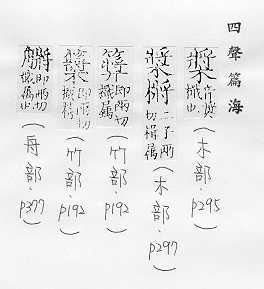 四聲篇海
檝也（木部．p295）
二子兩切楫屬（木部．p297）
即兩切檝屬（竹部．p192）
即兩切檝屬（竹部．p192）
即兩切檝屬也（舟部．p377）